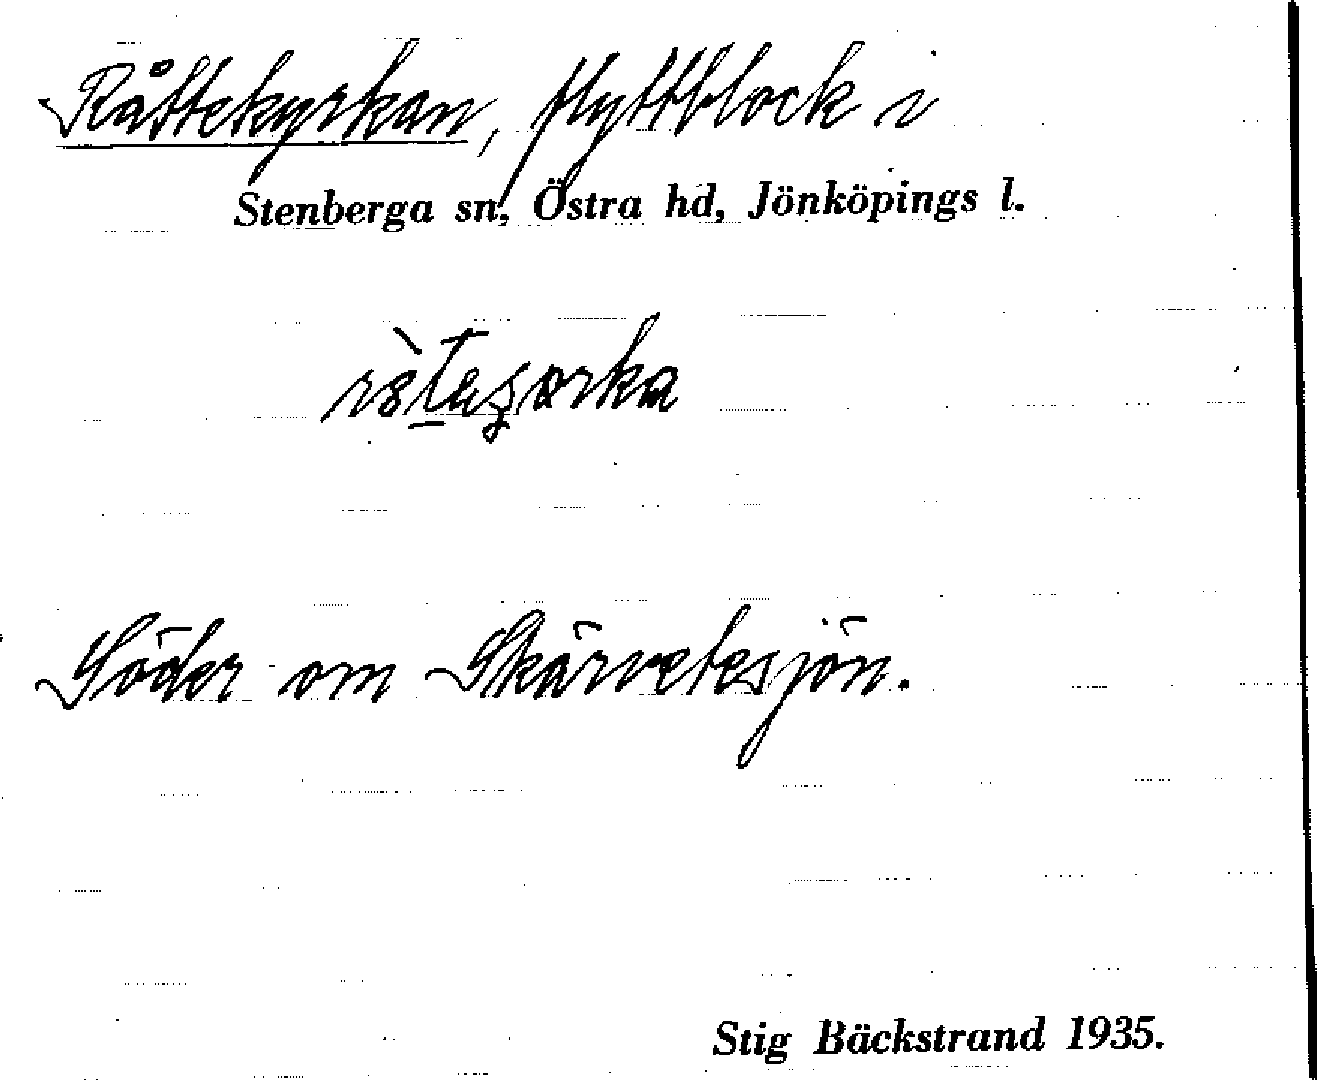 Råttekyrkan, flyttblock i
Stenberga sn, Östra hd, Jönköpings l.
Söder om Skärvetesjön.
Stig Bäckstrand 1935.